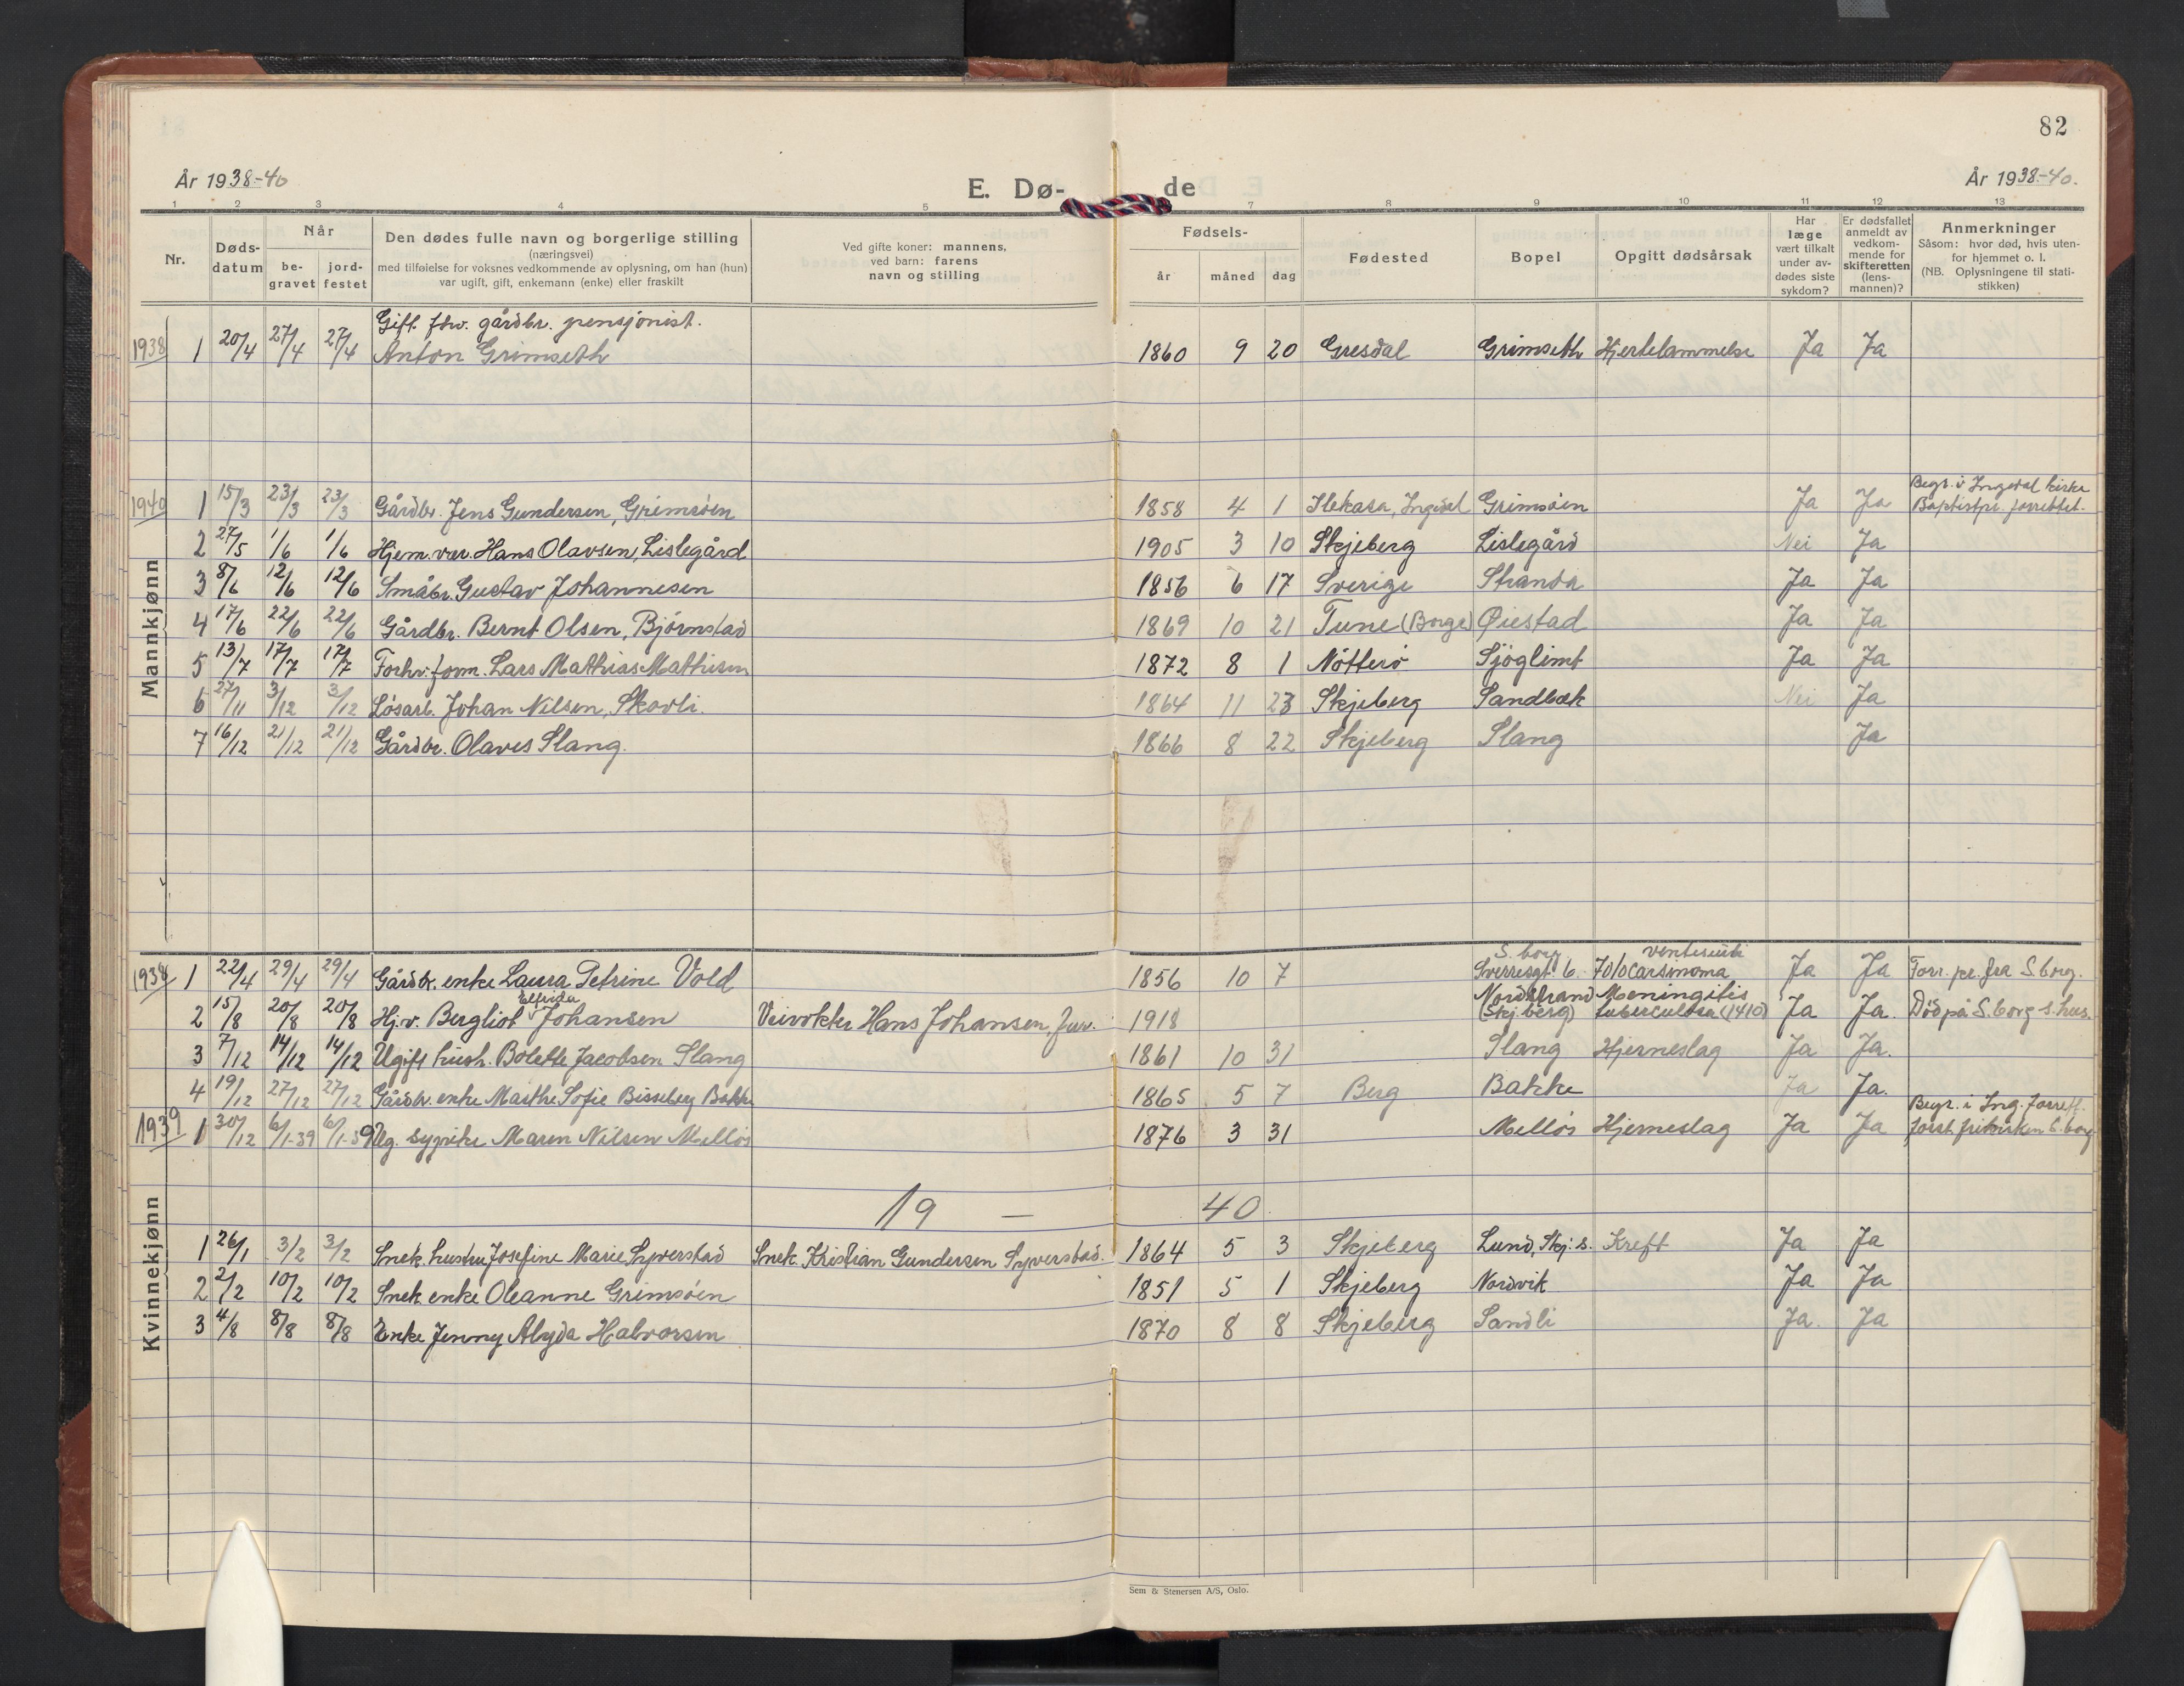 82
År 1938-40
E. Dø-
de
År 1938-40.
1 2 3 4 5 7 8 9 10 11 12 13
Nr.
Døds-
datum
Når
be-
gravet
jord-
festet
Den dødes fulle navn og borgerlige stilling
(næringsvei)
med tilføielse for voksnes vedkommende av oplysning, om han (hun)
var ugift, gift, enkemann (enke) eller fraskilt
Ved gifte koner: mannens,
ved barn: farens
navn og stilling
Fødsels-
år måned dag
Fødested
Bopel
Opgitt dødsårsak
Har
læge
vært tilkalt
under av-
dødes siste
sykdom?
Er dødsfallet
anmeldt av
vedkom-
mende for
skifteretten
(lens-
mannen)?
Anmerkninger
Såsom: hvor død, hvis uten-
for hjemmet o. l.
(NB. Oplysningene til stati-
stikken)
Mannkjønn
Gift. fhv. gårdbr. pensjonist.
1938 1 20/4 27/4 27/4 Anton Grimseth 1860 9 20 Gresdal Grimseth Hjertelammelse Ja Ja
Begr. i Ingedal kirke
1940 1 15/3 23/3 23/3 Gårdbr. Jens Gundersen, Grimsöen 1858 4 1 Ilekasa, Ingedal Grimsöen Ja Ja Baptistpr. forrettet.
2 27/5 1/6 1/6 Hjem.vær. Hans Olavsen, Lislegård 1905 3 10 Skjeberg Lislegård Nei Ja
3 8/6 12/6 12/6 Småbr. Gustav Johannesen 1856 6 17 Sverige Stranda Ja Ja
4 17/6 22/6 22/6 Gårdbr. Bernt Olsen, Björnstad 1869 10 21 Tune (Borge) Øiestad Ja Ja
5 13/7 17/7 17/7 Forhv. form. Lars Mathias Mathisen 1872 8 1 Nötterö Sjöglimt Ja Ja
6 27/11 3/12 3/12 Løsarb. Johan Nilsen, Skovli. 1864 11 23 Skjeberg Sandbæk Nei Ja
7 16/12 21/12 21/12 Gårdbr. Olaves Slang. 1866 8 22 Skjeberg Slang Ja
Kvinnekjønn
S. borg
1938 1 22/4 29/4 29/4 Gårdbr. enke Laura Petrine Vold 1856 10 7 Sverresgt. 6. carsinoma Ja Ja Forr. pr. fra S.borg.
Elfrida Nordstrand Meningitis
2 15/8 20/8 20/8 Hj.v. Bergliot Johansen Veivokter Hans Johansen, 1918 (Skj.berg) tuberculosa (1410) Ja Ja. Död på S.borg s.hus.
3 7/12 14/12 14/12 Ugift hush. Bolette Jacobsen Slang 1861 10 31 Slang Hjerneslag Ja Ja.
4 19/12 27/12 27/12 Gårdbr. enke Marthe Sofie Bisseberg Bakke 1865 5 7 Berg Bakke Ja Ja.
Begr. i Ing. forrett.
1939 1 30/12 6/1-39 6/1-39 Ug. sypike Maren Nilsen Mellös 1876 3 31 Mellös Hjerneslag Ja Ja forst. frikirken S.borg
19 — 40.
1 26/1 3/2 3/2 Snek. hustru Josefine Marie Syverstad Snek. Kristian Gundersen Syverstad. 1864 5 3 Skjeberg Lund, Skj: s. Kreft Ja Ja
2 2/2 10/2 10/2 Snek. enke Oleanne Grimsöen 1851 5 1 Skjeberg Nordvik Ja Ja
3 4/8 8/8 8/8 Enke Jenny Alyda Halvorsen 1870 8 8 Skjeberg Sandli Ja. Ja
Sem & Stenersen A/S, Oslo.